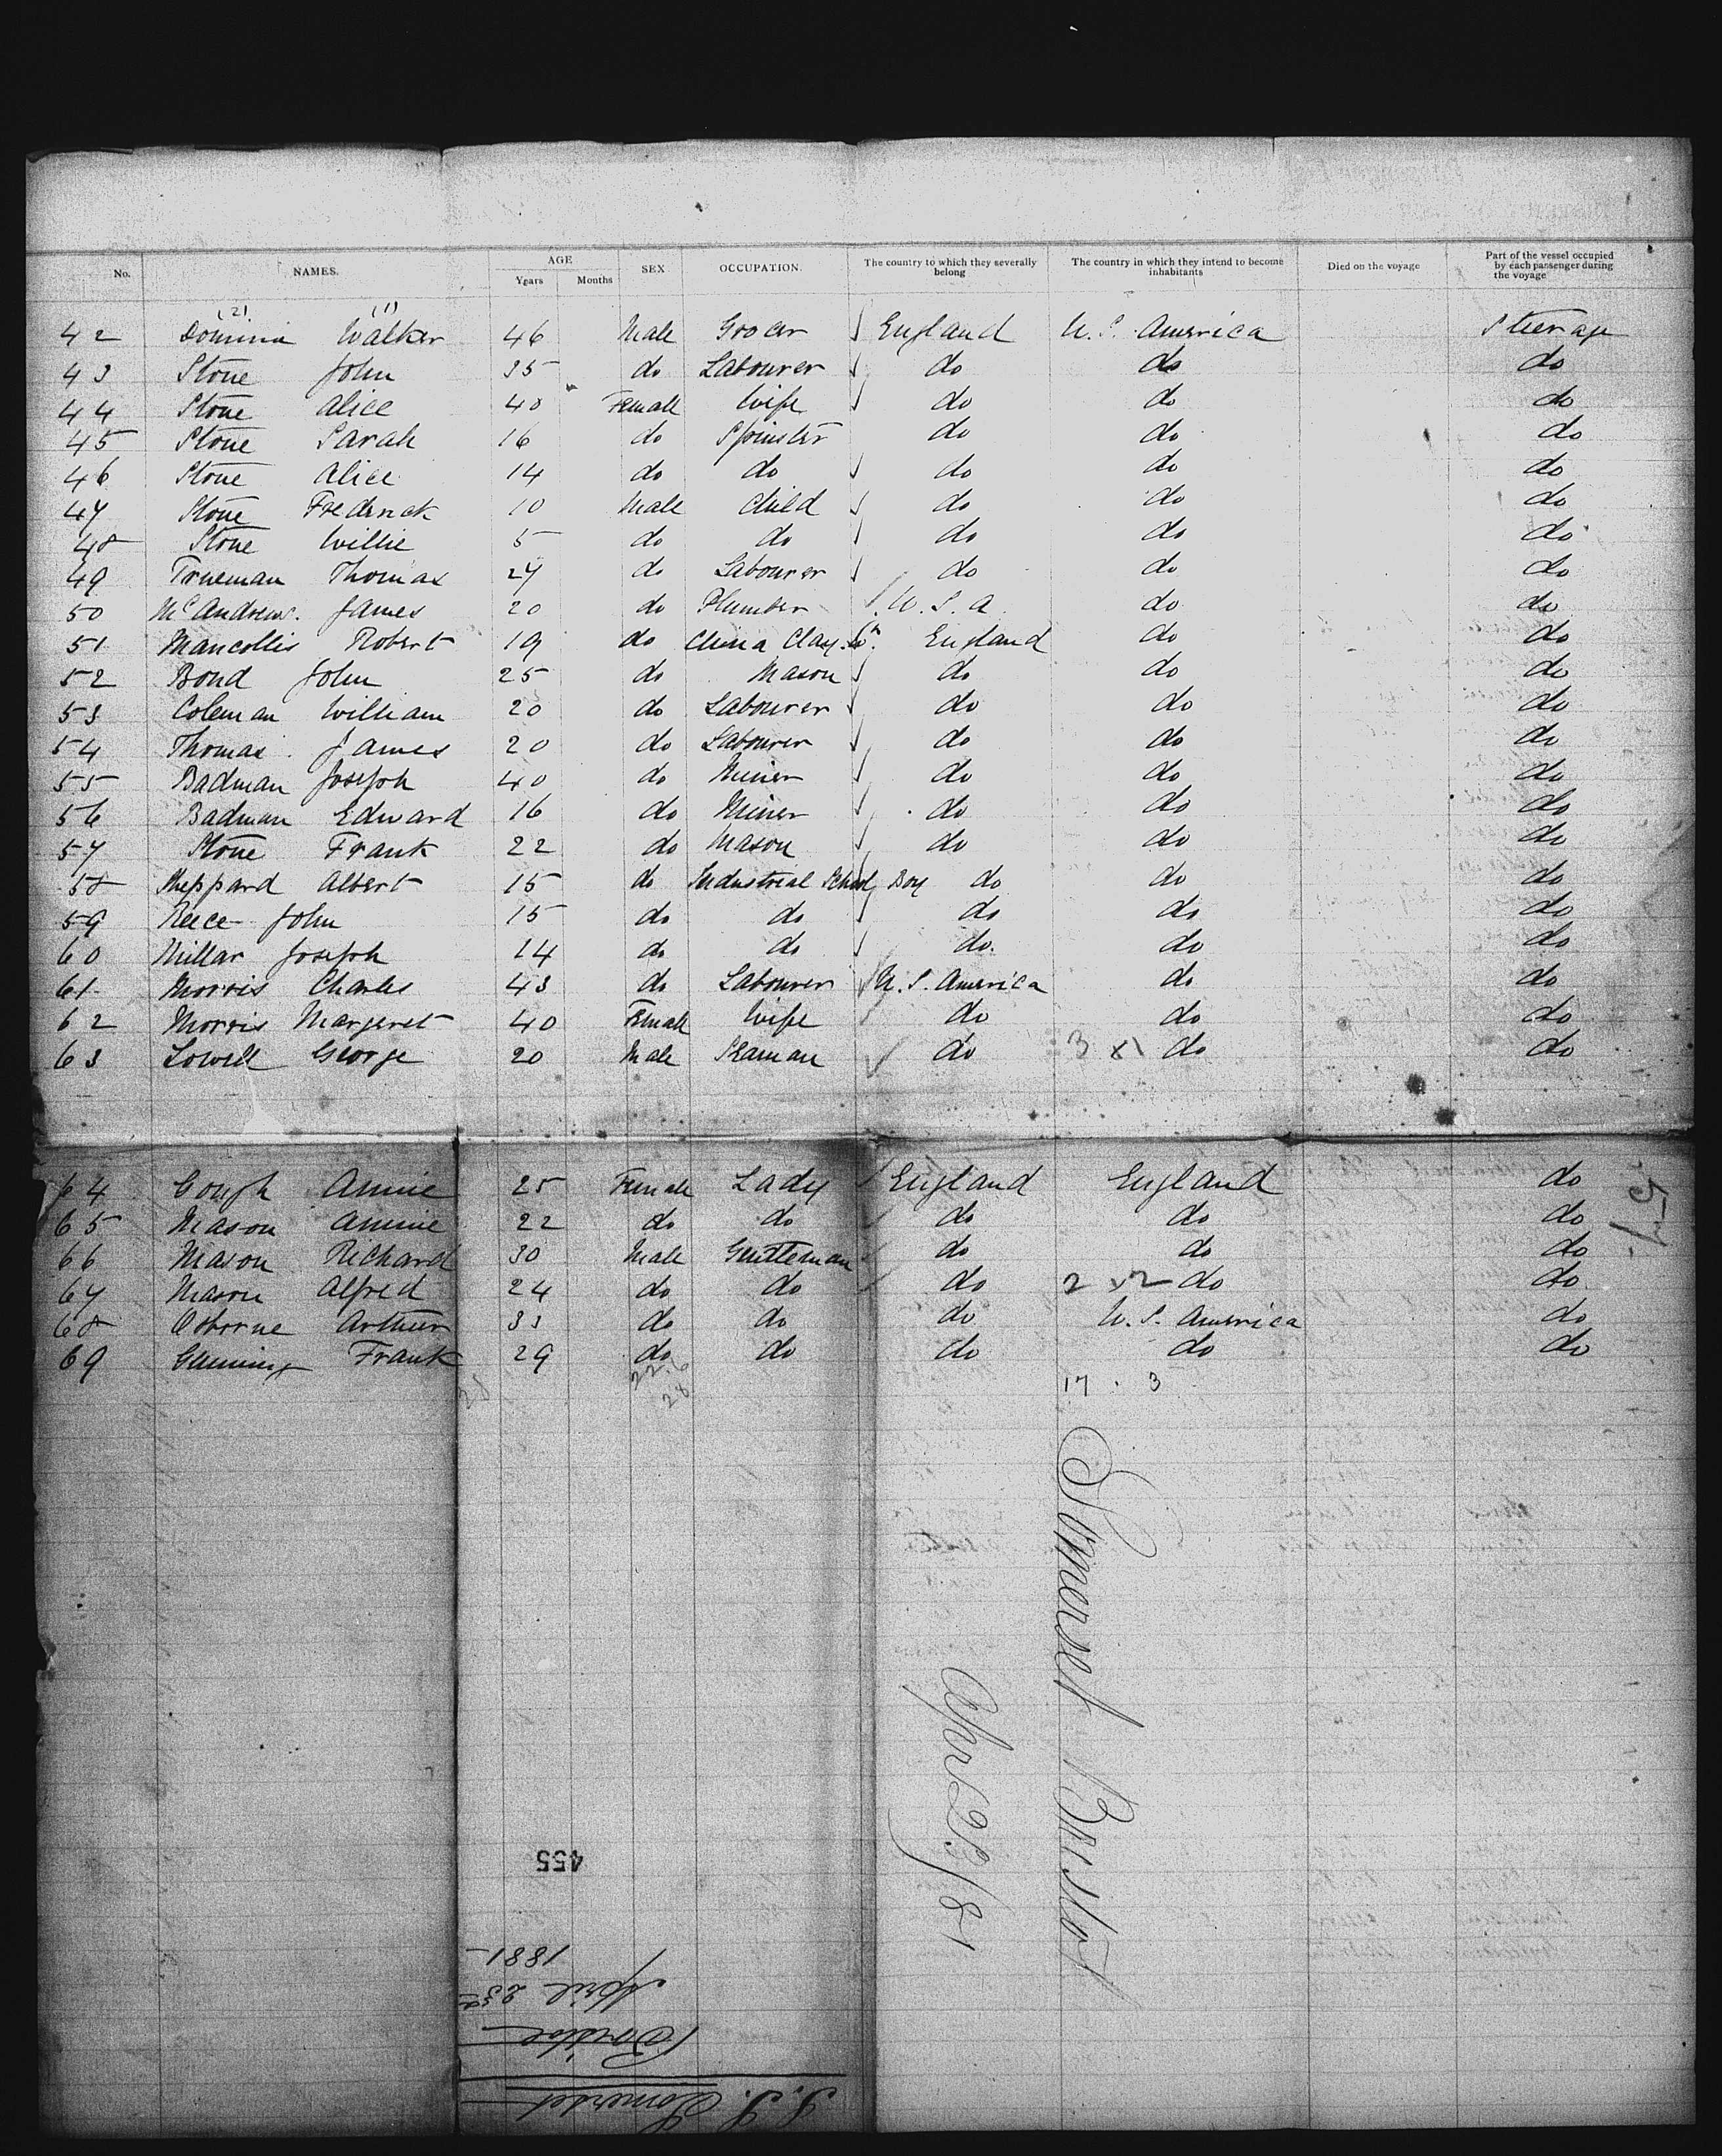 No. NAMES. AGE Years Months SEX. OCCUPATION. The country to which they severally belong The country in which they intend to become inhabitants Died on the voyage Part of the vessel occupied by each passenger during the voyage
(2) (1)
42 Walker 46 Male Grocer England U.S. America Steerage
43 Stone John 35 do Labourer do do do
44 Stone Alice 40 Female Wife do do do
45 Stone Sarah 16 do Spinster do do do
46 Stone Alice 14 do do do do do
47 Stone Frederick 10 Male Child do do do
48 Stone Willie 5 do do do do do
49 Trueman Thomas 27 do Labourer do do do
50 McAndrews. James 20 do Plumber U.S.A. do do
51 Mancollis Robert 19 do China Clay England do do
52 Bond John 25 do Mason do do do
53 Coleman William 20 do Labourer do do do
54 Thomas James 20 do Labourer do do do
55 Badman Joseph 40 do Miner do do do
56 Badman Edward 16 do Miner do do do
57 Stone Frank 22 do Mason do do do
58 Sheppard Albert 15 do Industrial School Boy do do do
59 Reece John 15 do do do do do
60 Millar Joseph 14 do do do do do
61 Morris Charles 43 do Labourer U.S. America do do
62 Morris Margaret 40 Female Wife do do do
63 Lowell George 20 Male Seaman do 3 x1 do do
64 Gough Annie 25 Female Lady England England do
65 Mason Annie 22 do do do do do
66 Mason Richard 30 Male Gentleman do do do
67 Mason Alfred 24 do do do 2 x2 do do
68 Osborne Arthur 33 do do do U.S. America do
69 Frank 29 do do do do do
17 . 3
Somerset Bristol
Apr 23/81
455
S.S. Somerset
Bristol
April 23rd
1881